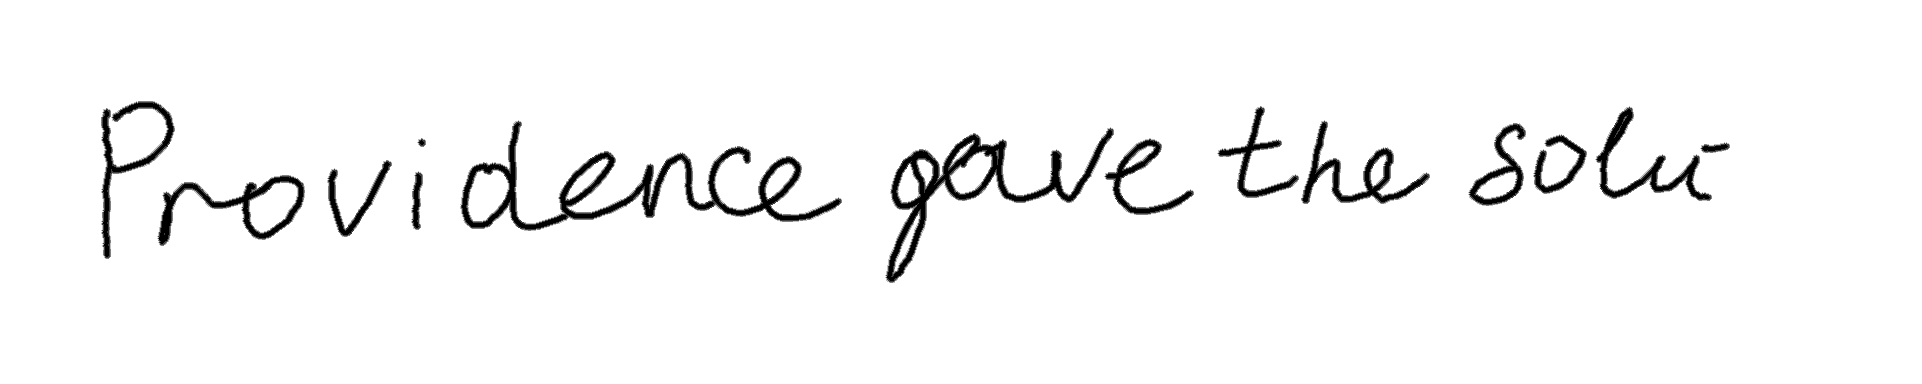 Providence gave the solu-